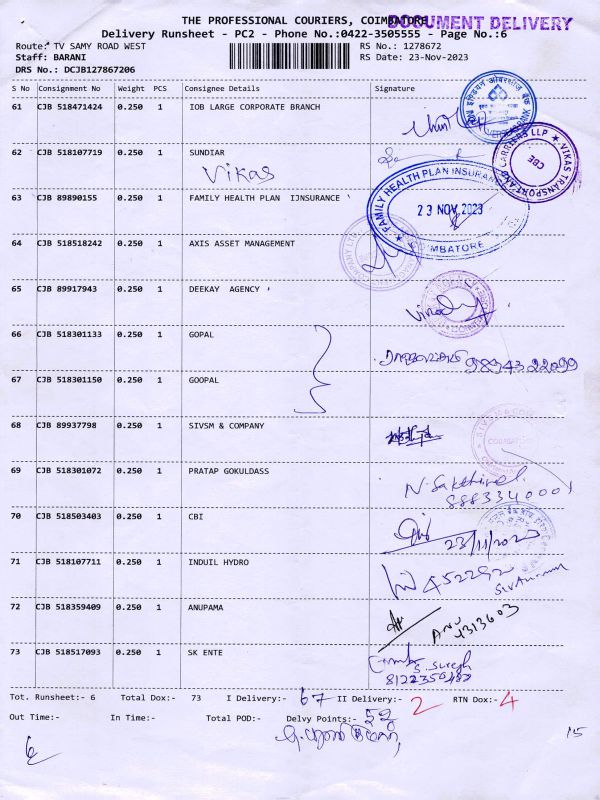 THE PROFESSIONAL COURIERS, COIMBATORE
DOCUMENT DELIVERY
Delivery Runsheet - PC2 - Phone No.:0422-3505555 - Page No.:6
Route: TV SAMY ROAD WEST RS No.: 1278672
Staff: BARANI RS Date: 23-Nov-2023
DRS No.: DCJB127867206
S No Consignment No Weight PCS Consignee Details Signature
61 CJB 518471424 0.250 1 IOB LARGE CORPORATE BRANCH
62 CJB 518107719 0.250 1 SUNDIAR
Vikas
VIKAS TRANSPORT AND CARRIERS LLP
CBE
63 CJB 89890155 0.250 1 FAMILY HEALTH PLAN IJNSURANCE
FAMILY HEALTH PLAN INSURANCE
23 NOV 2023
COIMBATORE
64 CJB 518518242 0.250 1 AXIS ASSET MANAGEMENT
65 CJB 89917943 0.250 1 DEEKAY AGENCY
66 CJB 518301133 0.250 1 GOPAL
9894322099
67 CJB 518301150 0.250 1 GOOPAL
68 CJB 89937798 0.250 1 SIVSM & COMPANY
69 CJB 518301072 0.250 1 PRATAP GOKULDASS
N. Sakthivel
8883340001
70 CJB 518503403 0.250 1 CBI
71 CJB 518107711 0.250 1 INDUIL HYDRO
72 CJB 518359409 0.250 1 ANUPAMA
ANU
4313603
73 CJB 518517093 0.250 1 SK ENTE
S. Suresh
Tot. Runsheet:- 6 Total Dox:- 73 I Delivery:- 67 II Delivery:- 2 RTN Dox:- 4
Out Time:- In Time:- Total POD:- Delvy Points:- 52
15